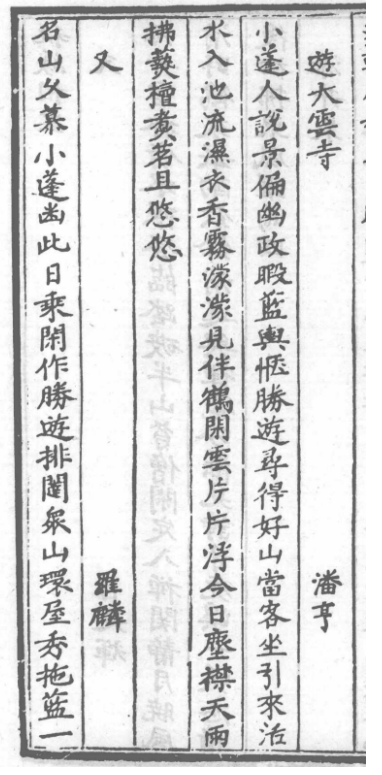 遊大雲寺 潘亨
小蓬人說景偏幽政暇藍輿愜勝遊尋得好山當客坐引來活
水入池流濕衣香霧濛濛見伴鶴閑雲片片浮今日塵襟天兩
拂爇檀煑茗且悠悠
又 羅麟
名山久慕小蓬幽此日乘閑作勝遊排闥衆山環屋秀拖藍一